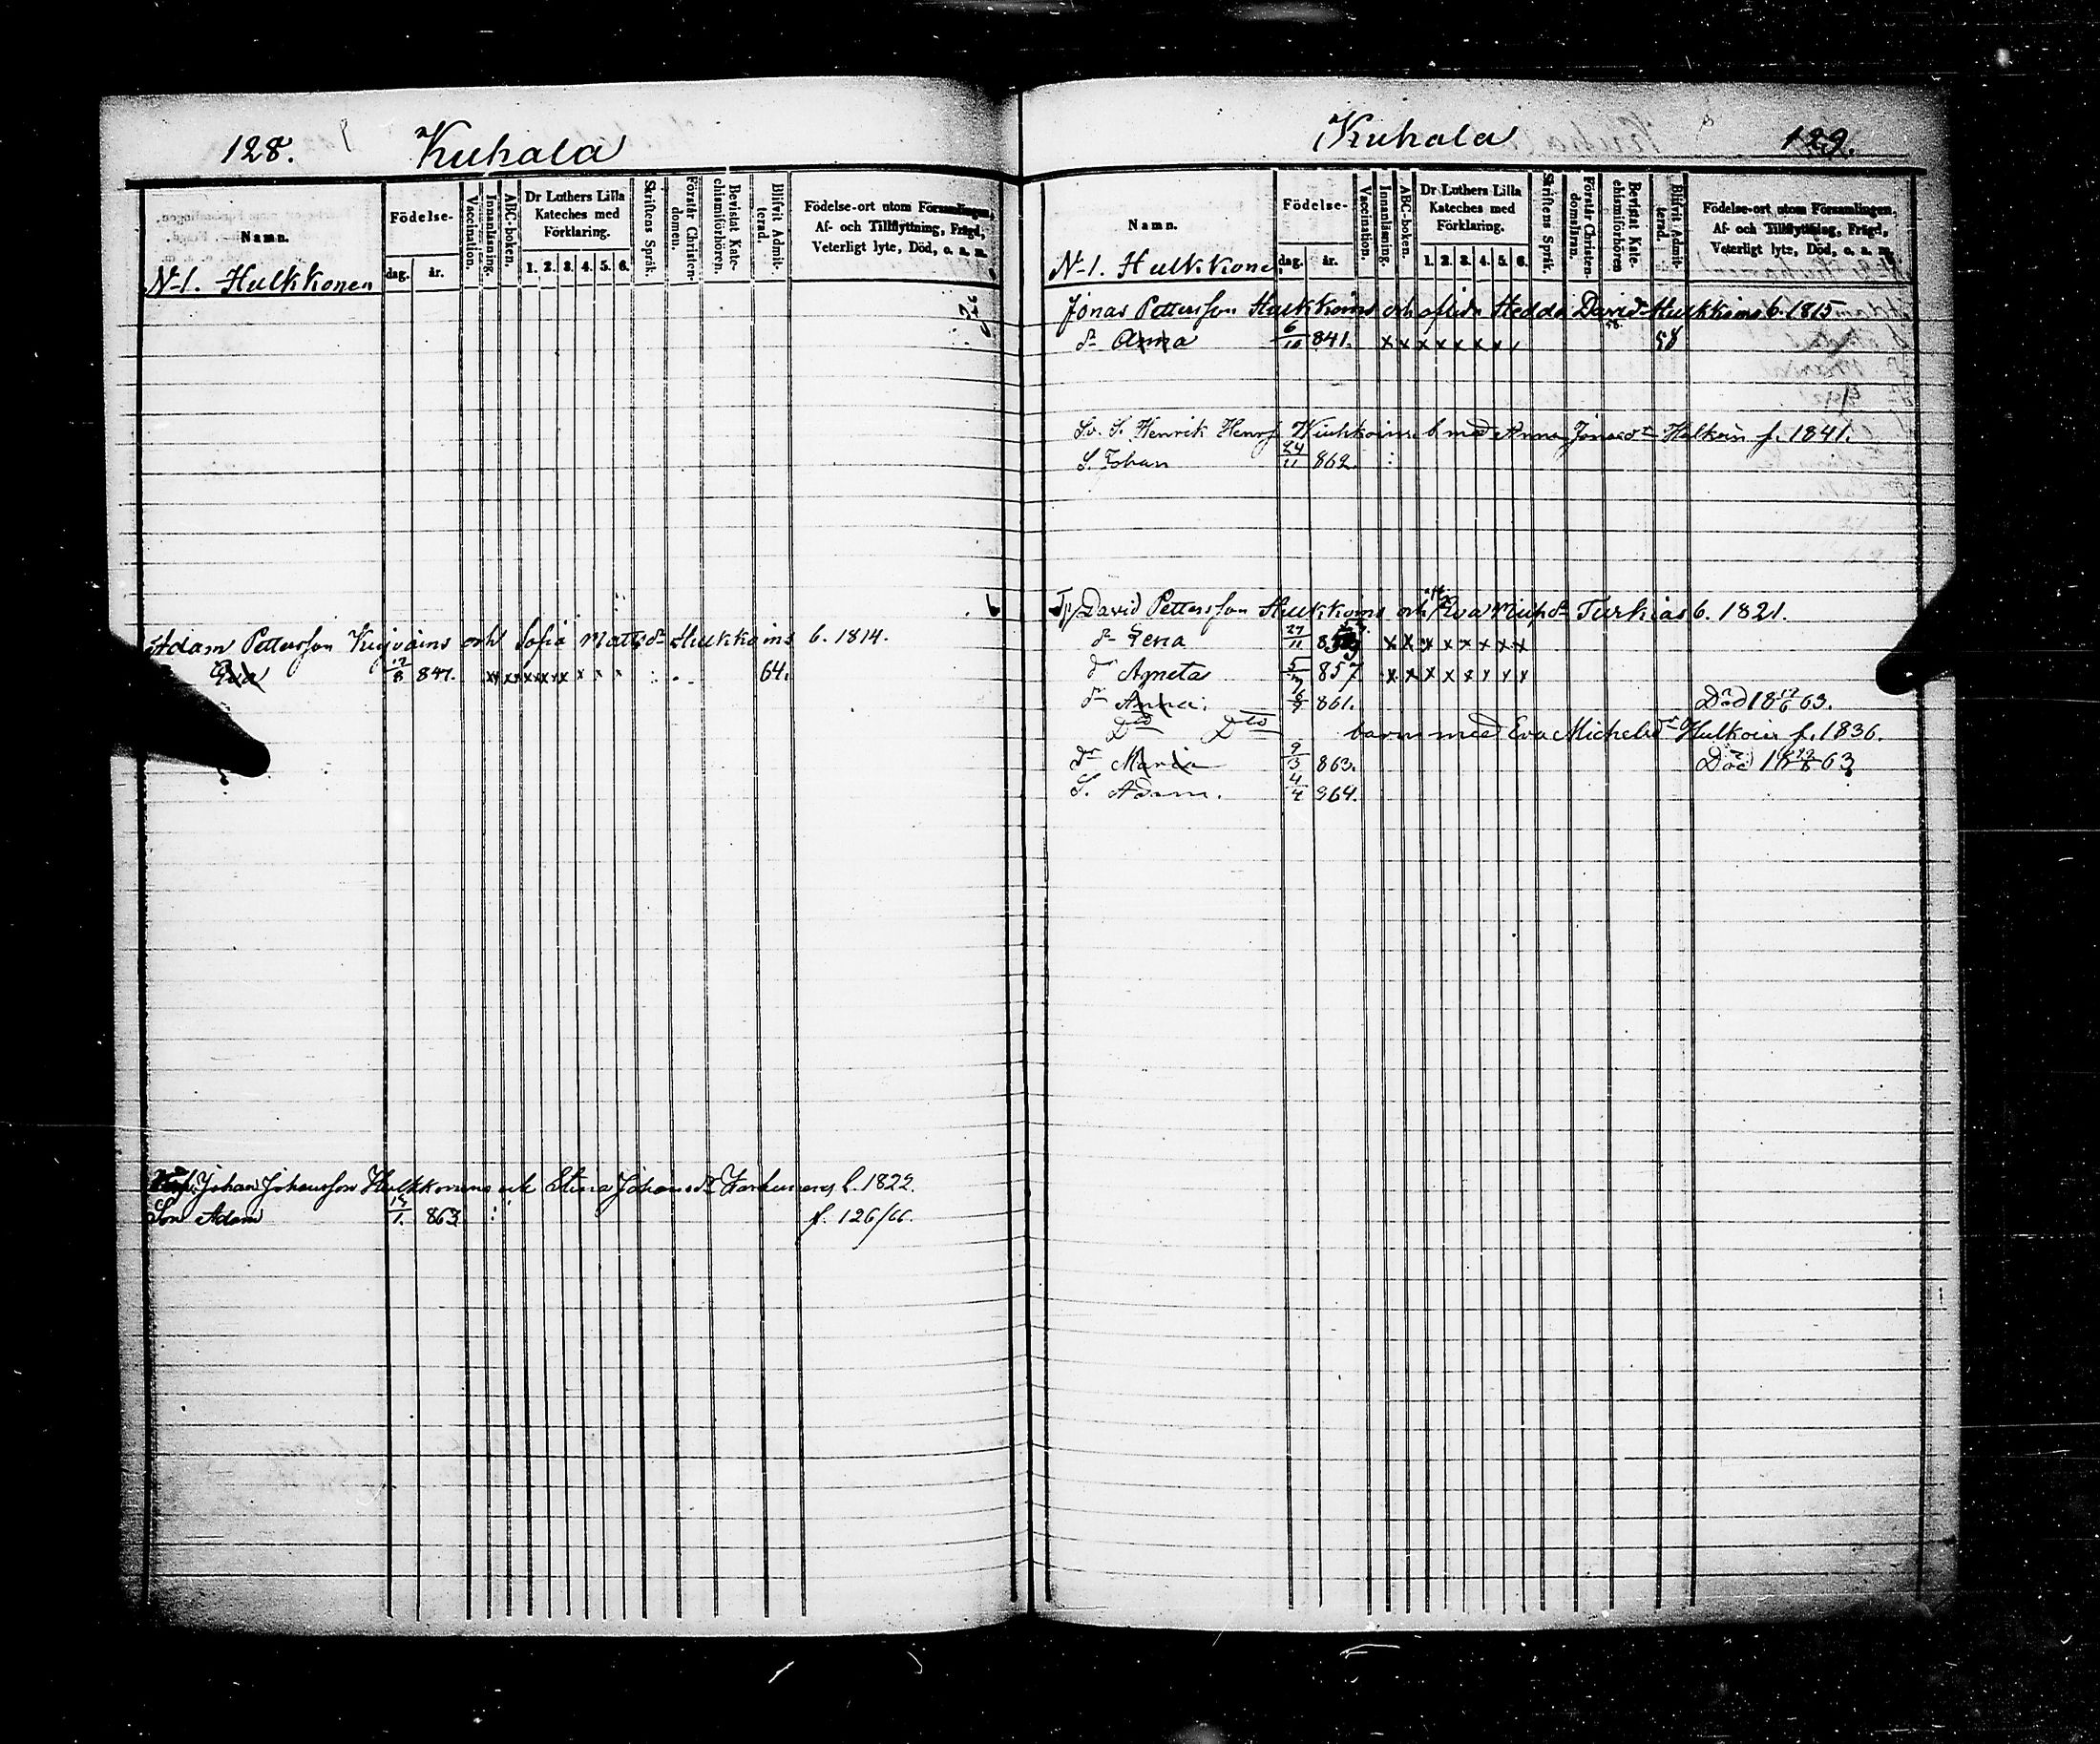 128. Kuhala
Namn.
Födelse-
dag. år.
Vaccination.
Innanläsning.
ABC-boken.
Dr Luthers Lilla
Kateches med
Förklaring.
1. 2. 3. 4. 5. 6.
Skriftens Språk.
Förstår Christen-
domen.
Bevistat Kate-
chismiförhören.
Blifvit Admit-
terad.
Födelse-ort utom Församlingen,
Af- och Tillflyttning, Frägd,
Veterligt lyte, Död, o. s. m.
N-1. Hulkkonen
Adam Pettersson och Sofia Mattsdr Hukkoins b. 1814.
Eva 12/8 847. x x x x x x x x x x 64.
Johan Johansson Hulkkonens och Stina Johansdr b. 1822.
Son Adam 863 f. 126/66.
Kuhala 129.
Namn.
Födelse-
dag. år.
Vaccination.
Innanläsning.
ABC-boken.
Dr Luthers Lilla
Kateches med
Förklaring.
1. 2. 3. 4. 5. 6.
Skriftens Språk.
Förstår Christen-
domsläran.
Bevistat Kate-
chismiförhören
Blifvit Admit-
terad.
Födelse-ort utom Församlingen,
Af- och Tillflyttning, Frägd,
Veterligt lyte, Död, o. s. m.
N-1. Hulkkone
Jonas Pettersson Hulkkoins och aflidn Hedda Davidr Hulkkoins b. 1815
dr Anna 6/10 841. x x x x x x x x 58
Sv. S. Henrik b med Anna Jonasdr Hulkoin f. 1841.
S. Johan 24/11 862
David Pettersson Hukkoins och Eva Turkias b. 1821.
dr Lena 27/11 x x x x x x x x
dr Agneta 857 x x x x x x x x
dr Anna. 861. Död 18 12/6 63.
Dto Dto barn med Eva Michelsdr Hulkoin f. 1836.
dr Maria 9/3 863. Död 18 63
S. Adam. 4/4 864.